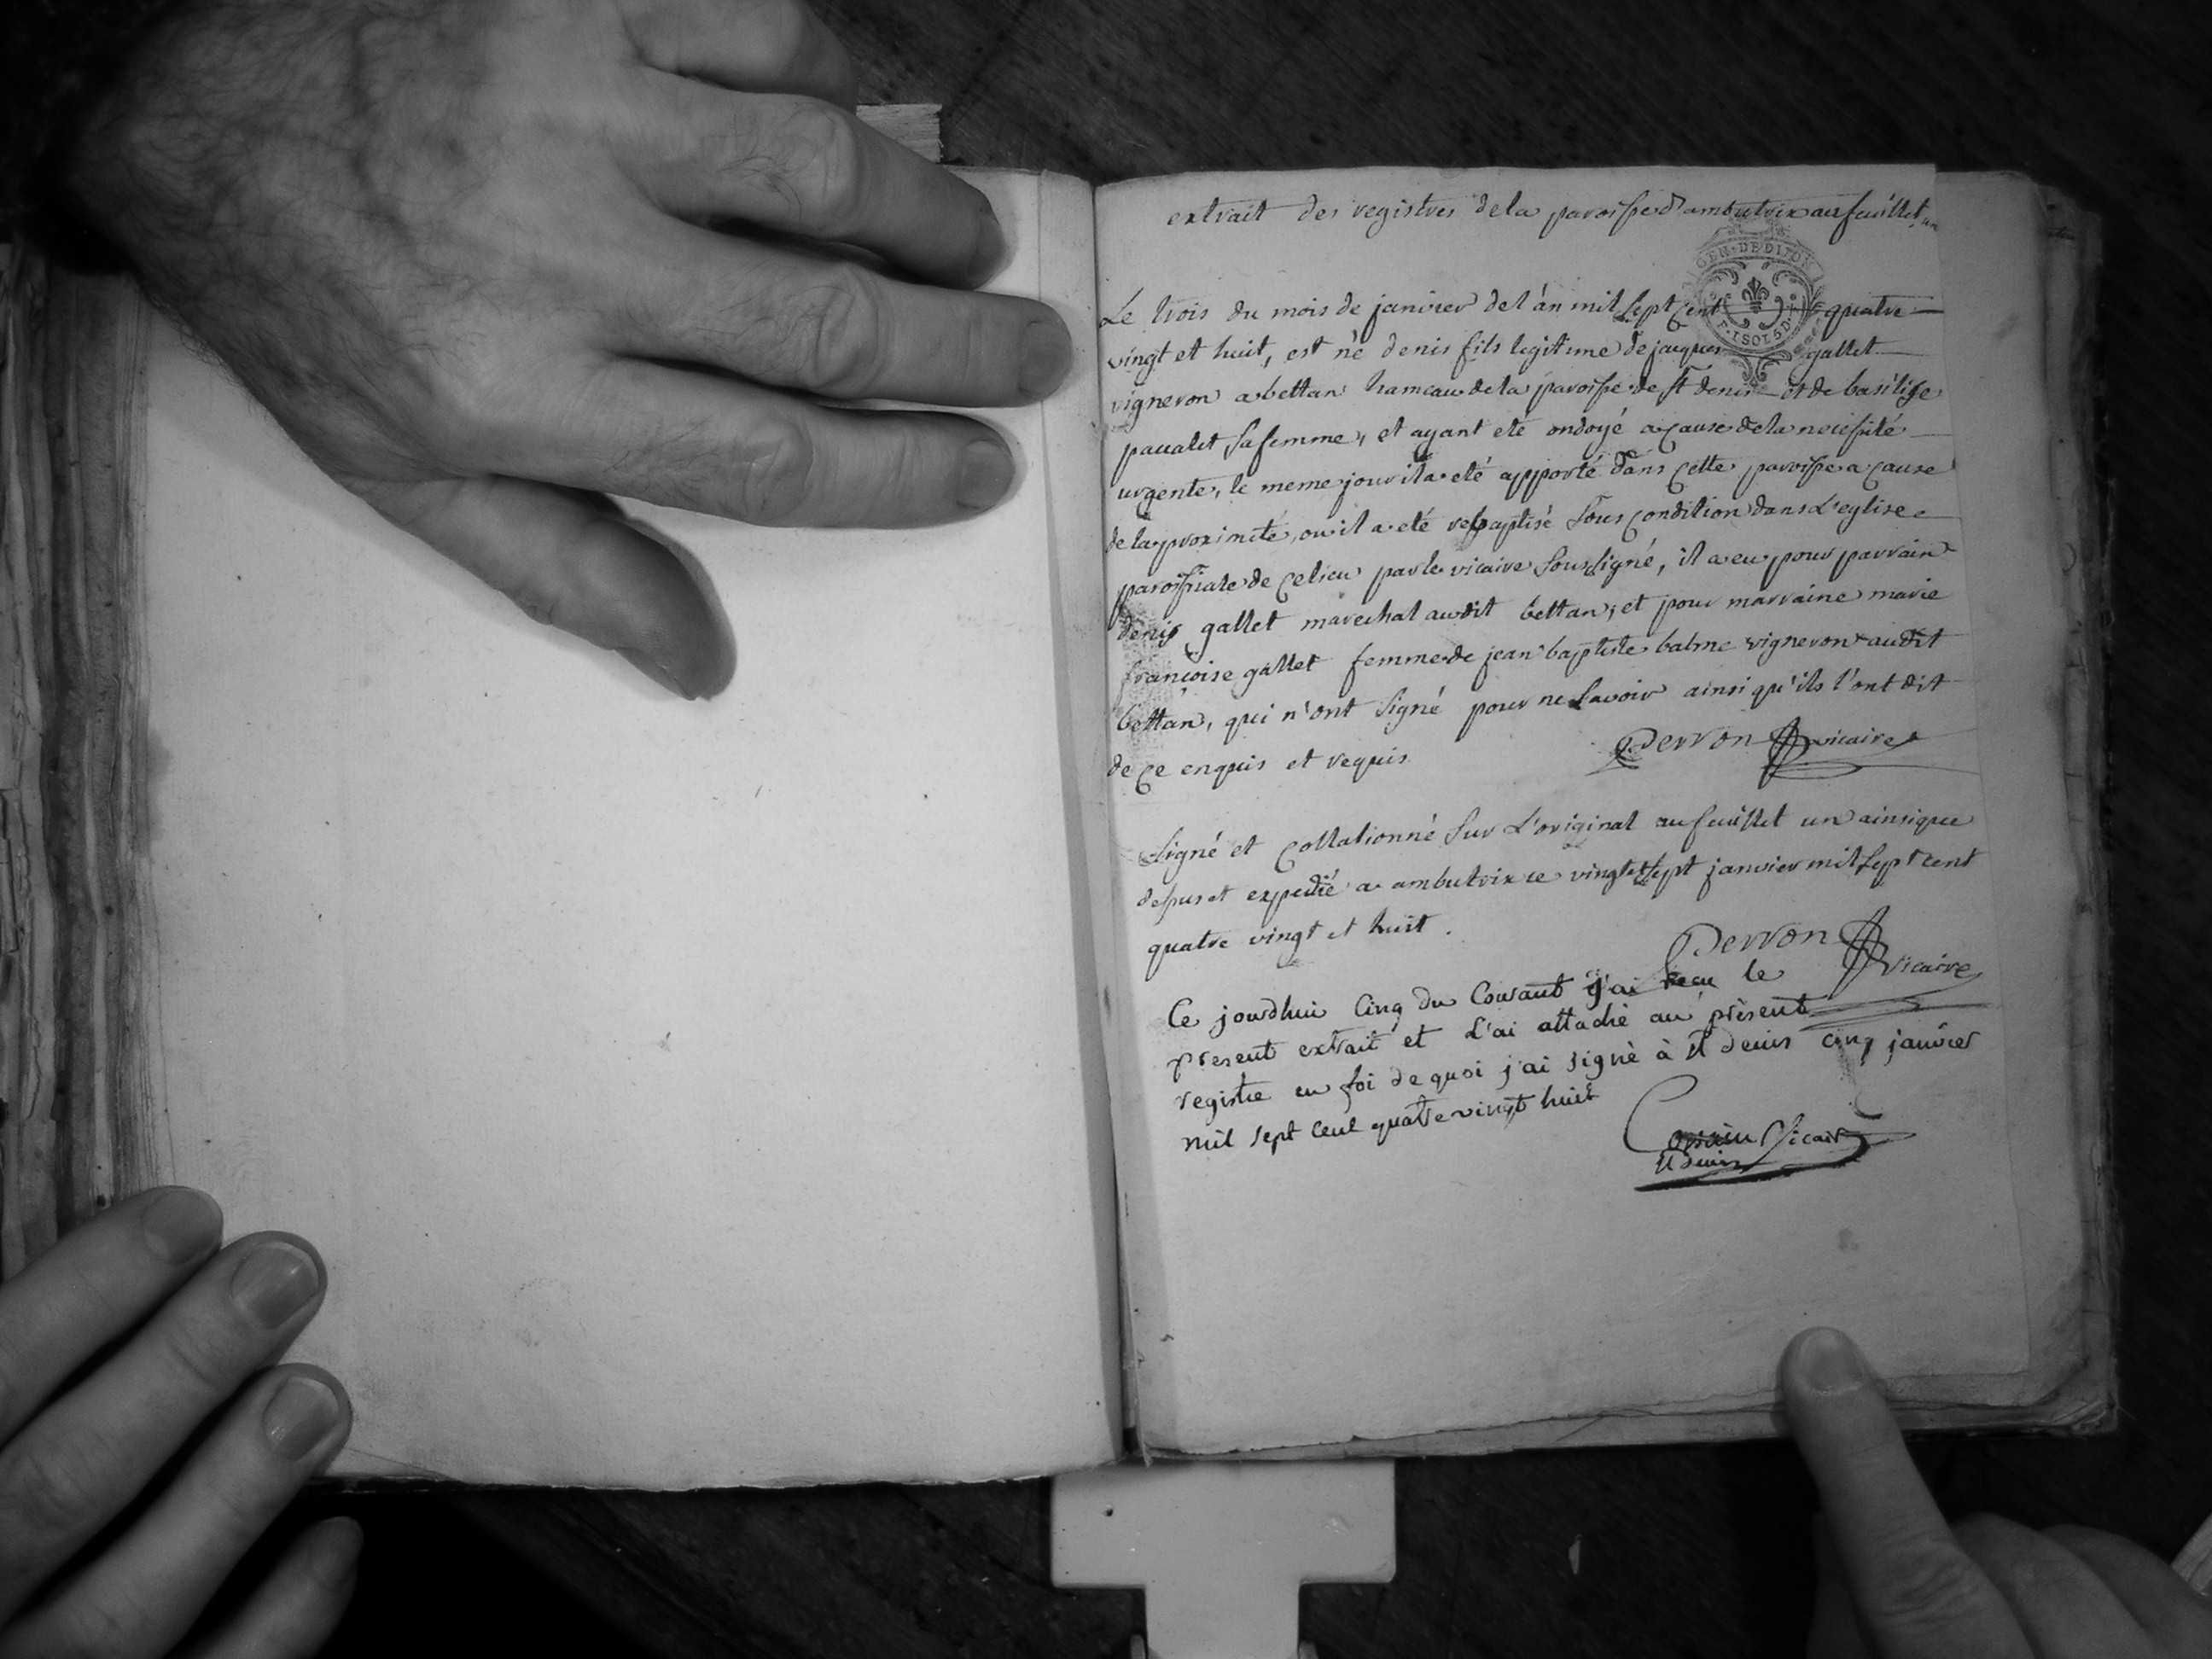 extrait des registres dela paroisse d'ambutrix au feuillet un
GEN. DE DIJON
P. 1 SOL 5 D.
Le trois du mois de janvier del'an mil sept cent quatre
vingt et huit, est né denis fils legitime de jacques gallet
vigneron a bettan hameau dela paroisse de st denis et de basilise
paualet sa femme, et ayant eté ondoyé a cause dela necessité
urgente, le meme jour il a eté apporté dans cette paroisse a cause
de la proximité, ou il a eté rebaptisé sous condition dans l'eglise
paroissiale de ce lieu par le vicaire soussigné, il a eu pour parrain
denis gallet marechal audit bettan, et pour marraine marie
françoise gallet femme de jean baptiste balme vigneron audit
bettan, qui n'ont signé pour ne savoir ainsi qu'ils l'ont dit
de ce enquis et requis.
Perron vicaire
signé et collationné sur l'original au feuillet un ainsi que
dessus et expedié a ambutrix ce vingt et sept janvier mil sept cent
quatre vingt et huit.
Perron vicaire
Ce jourdhui cinq du courant j'ai recu le
present extrait et l'ai attaché au présent
registre en foi de quoi j'ai signé à st denis cinq janvier
mil sept cent quatre vingt huit
Vicair
st denis